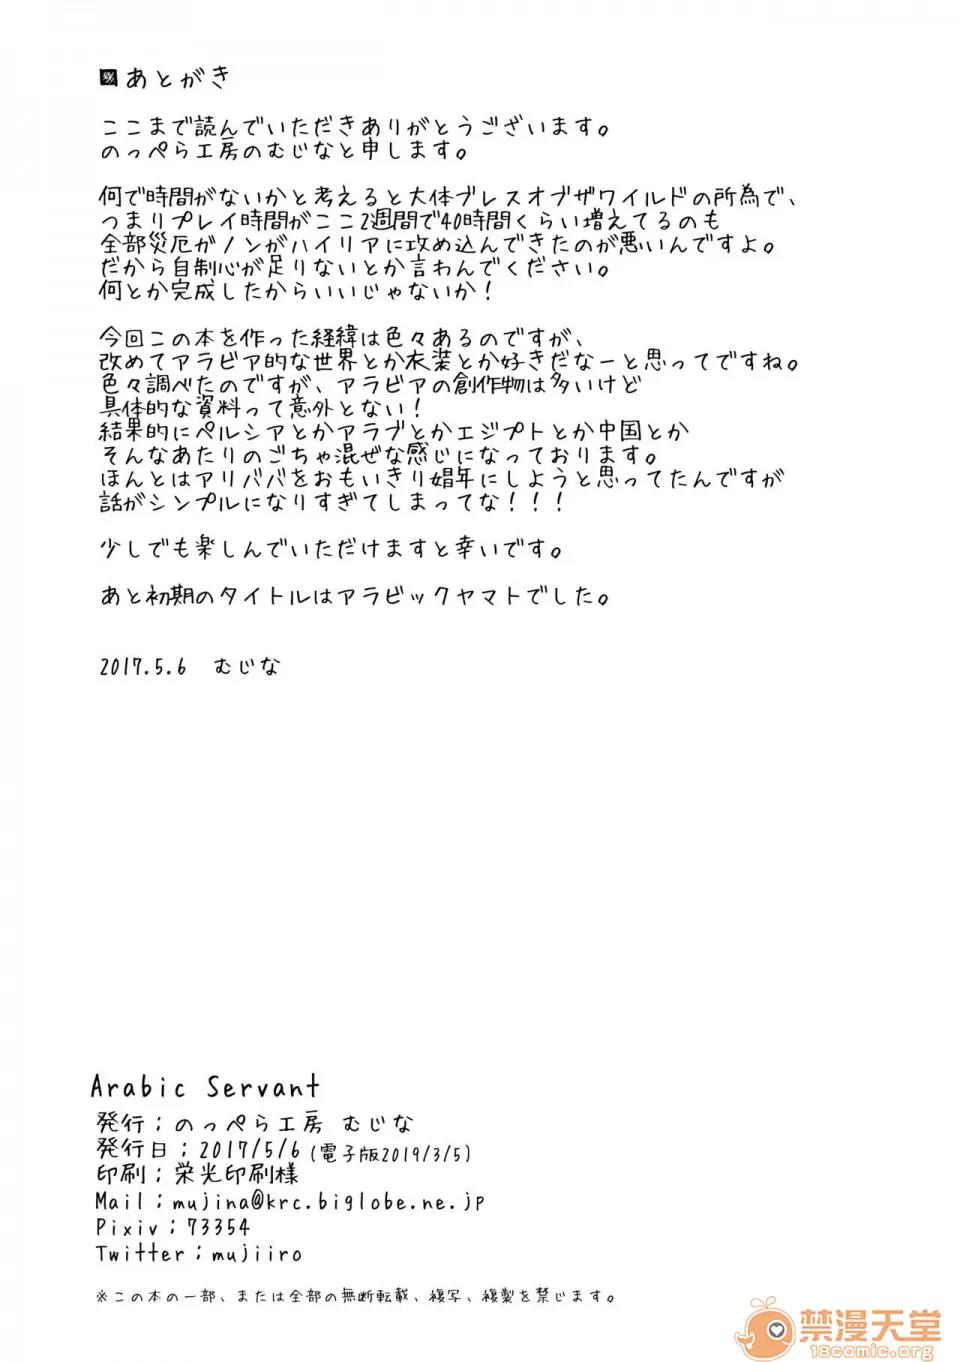 あとがき
ここまで読んでいただきありがとうございます。
のっぺら工房のむじなと申します。
何で時間がないかと考えると大体ブレスオブザワイルドの所為で、
つまりプレイ時間がここ2週間で40時間くらい増えてるのも
全部災厄がノンがハイリアに攻め込んできたのが悪いんですよ。
だから自制心が足りないとか言わんでください。
何とか完成したからいいじゃないか！
今回この本を作った経緯は色々あるのですが、
改めてアラビア的な世界とか衣装とか好きだなーと思ってですね。
色々調べたのですが、アラビアの創作物は多いけど
具体的な資料って意外とない！
結果的にペルシアとかアラブとかエジプトとか中国とか
そんなあたりのごちゃ混ぜな感じになっております。
ほんとはアリババをおもいきり娼年にしようと思ってたんですが
話がシンプルになりすぎてしまってな！！！
少しでも楽しんでいただけますと幸いです。
あと初期のタイトルはアラビックヤマトでした。
2017.5.6　むじな
Arabic Servant
発行；のっぺら工房 むじな
発行日；2017/5/6（電子版2019/3/5）
印刷；栄光印刷様
Mail；mujina@krc.biglobe.ne.jp
Pixiv；73354
Twitter；mujiiro
※この本の一部、または全部の無断転載、複写、複製を禁じます。
禁漫天堂
18comic.org